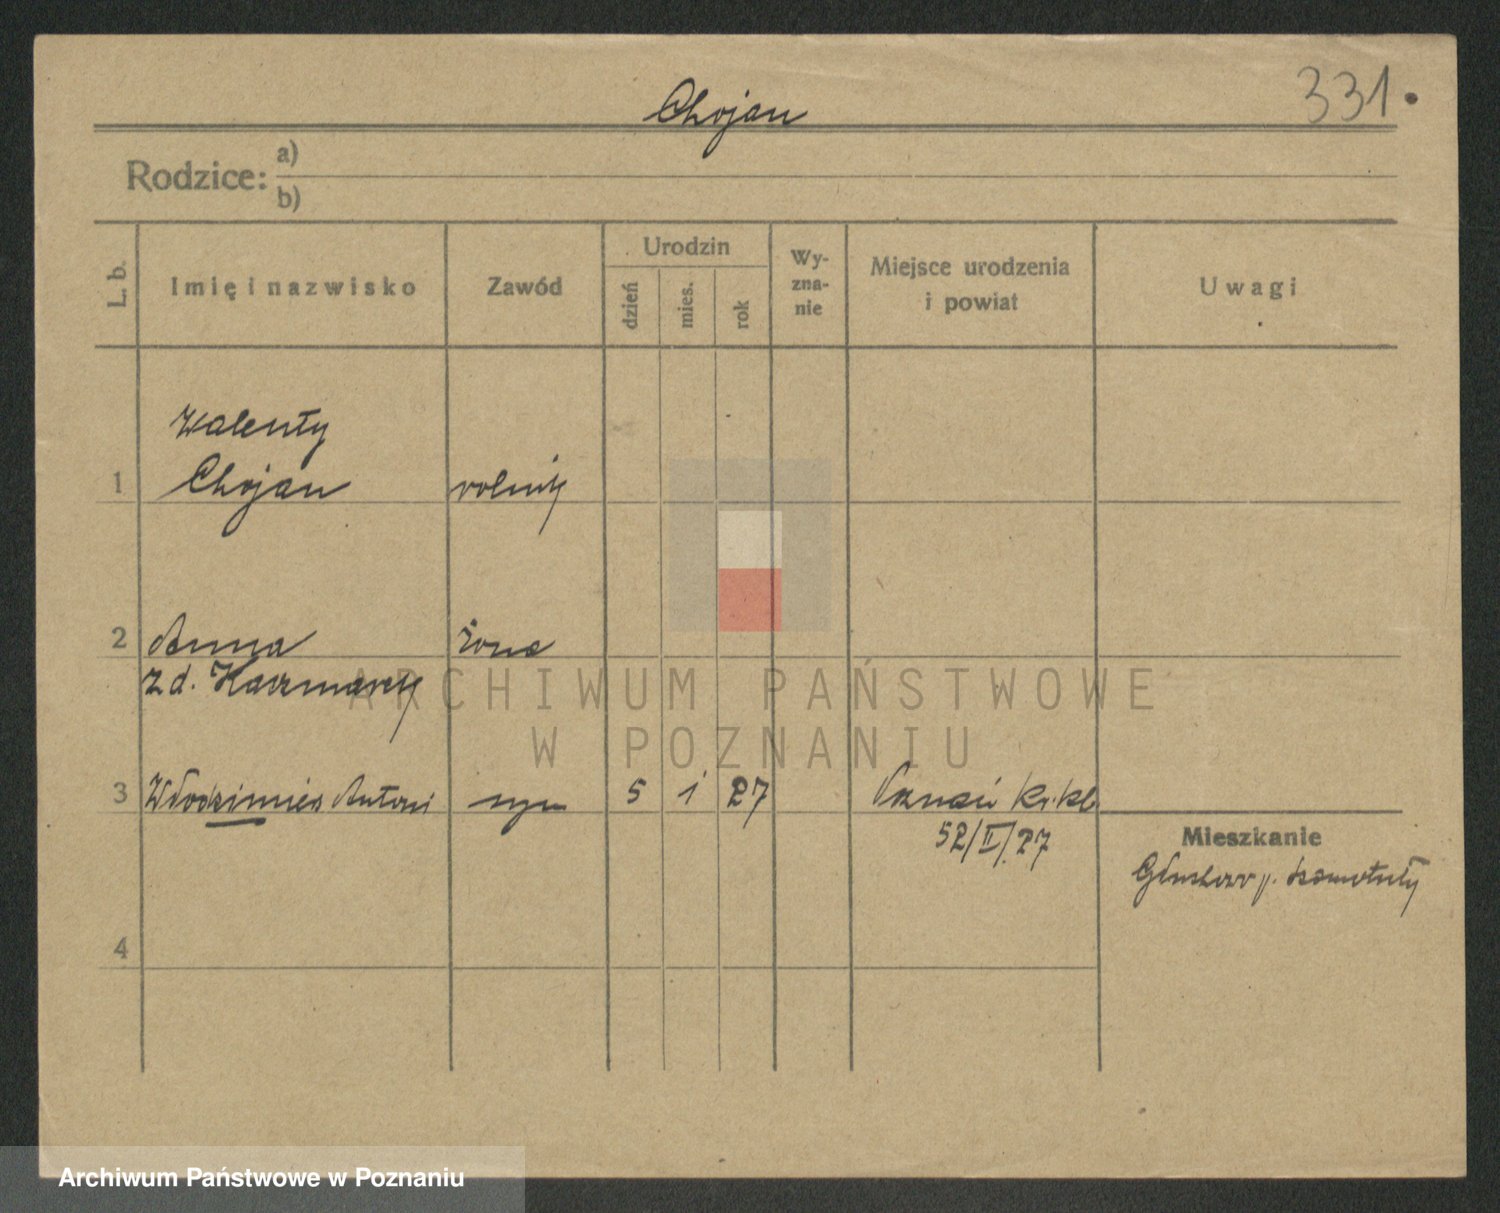 Chojan
331.
Rodzice: a)
b)
L. b.
Imię i nazwisko
Zawód
Urodzin
dzień
mies.
rok
Wy-
zna-
nie
Miejsce urodzenia
i powiat
Uwagi
Walenty
1 Chojan rolnik
2 Anna żona
z d. Kaczmarek
3 Włodzimierz Antoni syn 5 1 27 Poznań
52/II/27
Mieszkanie
p. Szamotuły
4
ARCHIWUM PAŃSTWOWE
W POZNANIU
Archiwum Państwowe w Poznaniu